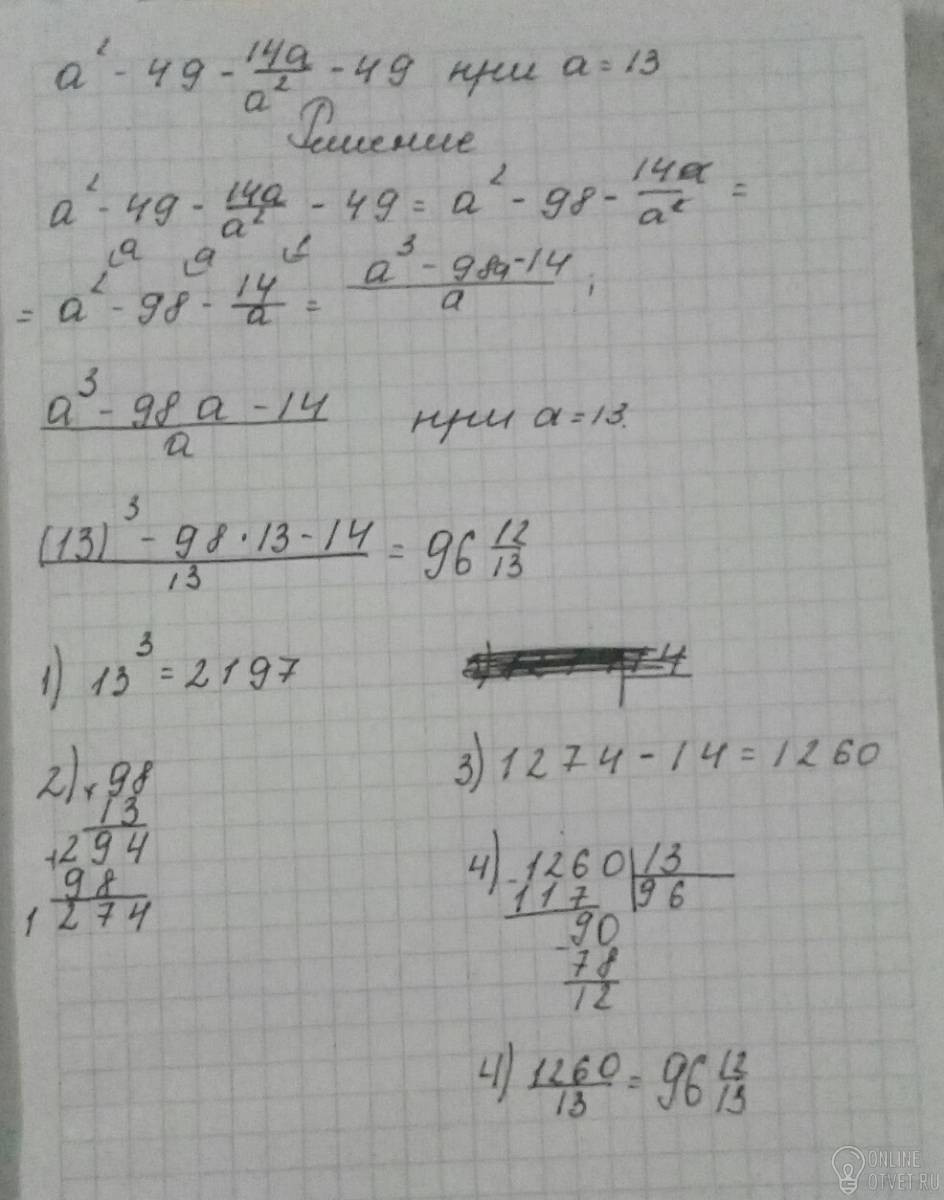 a² - 49 - 14a/a² - 49 при a = 13
Решение
a² - 49 - 14a/a² - 49 = a² - 98 - 14a/a² =
a a 1
= a² - 98 - 14/a = a³ - 98a - 14/a ;
a³ - 98a - 14/a при a = 13.
(13)³ - 98 · 13 - 14/13 = 96 12/13
1) 13³ = 2197
2) × 98
13
+ 294
98
1274
3) 1274 - 14 = 1260
4) - 1260 | 13
117 | 96
- 90
78
12
4) 1260/13 = 96 12/13
ONLINE
OTVET.RU